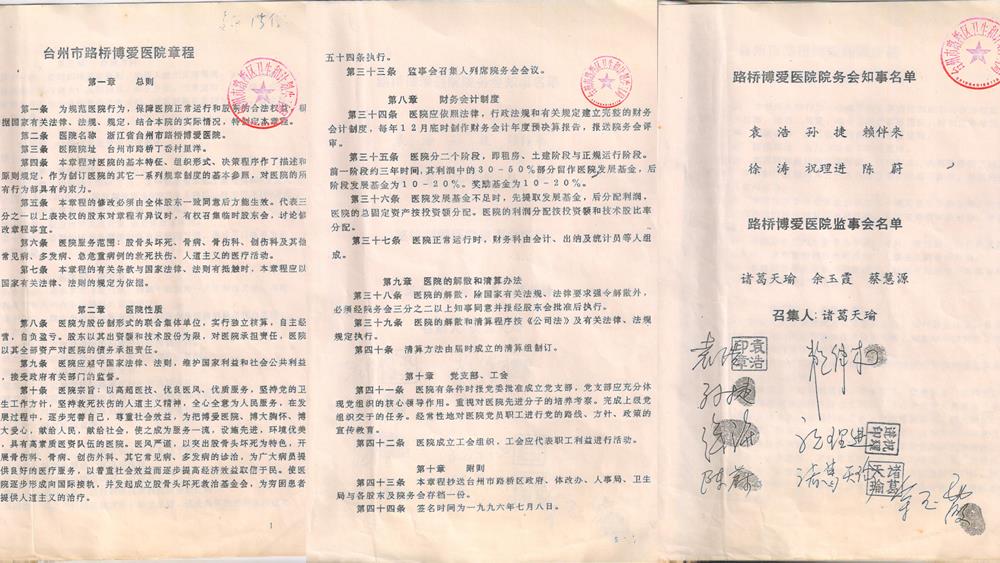 台州市路桥博爱医院章程
第一章 总则
第一条 为规范医院行为，保障医院正常运行和股东的合法权益，根
据国家有关法律、法规、规定，结合本院的实际情况，特制定本章程。
第二条 医院名称 浙江省台州市路桥博爱医院。
第三条 医院院址 台州市路桥丁岙村屋里。
第四条 本章程对医院的基本特征、组织形式、决策程序作了描述和
原则规定，作为制订医院的其它一系列规章制度的基本参照，对医院的所
有行为部具有约束力。
第五条 本章程的修改必须由全体股东一致同意后方能生效。代表三
分之一以上表决权的股东对章程有异议时，有权召集临时股东会，讨论修
改章程事宜。
第六条 医院服务范围：股骨头坏死、骨病、骨伤科、创伤科及其他
常见病、多发病、急危重病例的救死扶伤、人道主义的医疗活动。
第七条 本章程的有关条款与国家法律、法则有抵触时，本章程应以
国家有关法律、法则的规定为依据。
第二章 医院性质
第八条 医院为股份制形式的联合集体单位，实行独立核算，自主经
营，自负盈亏。股东以其出资额和技术股份为限，对医院承担责任，医院
以其全部资产对医院的债务承担责任。
第九条 医院应遵守国家法律、法则，维护国家利益和社会公共利益
，接受政府有关部门的监督。
第十条 医院宗旨：以高超医技、优良医风、优质服务，坚持党的卫
生工作方针，坚持救死扶伤的人道主义精神，全心全意为人民服务，在发
展过程中，逐步完善自己，尊重社会效益，为把博爱医院、博大胸怀、博
大爱心，献给人民，献给社会，使之成为服务一流，设施先进，环境优美
，具有高素质医资队伍的医院。医风严谨，以突出股骨头坏死为特色，开
展骨伤科、骨病、创伤外科、其它常见病、多发病的诊治，为广大病员提
供良好的医疗服务，以着重社会效益而逐步提高经济效益取信于民。使医
院逐步形成向国际接轨，并发起成立股骨头坏死救治基金会，为穷困患者
提供人道主义的治疗。
1
五十四条执行。
第三十三条 监事会召集人列席院务会会议。
第八章 财务会计制度
第三十四条 医院应依照法律，行政法规和有关规定建立完整的财务
会计制度，每年12月底时制作财务会计年度预决算报告，报送院务会评
审。
第三十五条 医院分二个阶段，即租房、土建阶段与正规运行阶段。
前一阶段的三年时间，其利润中的30-50%部分留作医院发展基金，后
阶段发展基金为10-20%。奖励基金为10-20%。
第三十六条 医院发展基金不足时，先提取发展基金，后分配利润，
医院的总固定资产按投资额分配。医院的利润分配按投资额和技术股比率
分配。
第三十七条 医院正常运行时，财务科由会计、出纳及统计员等人组
成。
第九章 医院的解散和清算办法
第三十八条 医院的解散，除国家有关法规、法律要求强令解散外，
必须经院务会三分之二以上知事同意并报经股东会批准后执行。
第三十九条 医院的解散和清算程序按《公司法》及有关法律、法规
规定执行。
第四十条 清算方法由届时成立的清算组制订。
第十章 党支部、工会
第四十一条 医院有条件时报党委批准成立党支部，党支部应充分体
现党组织的核心领导作用。重视对医院先进分子的培养考察。完成上级党
组织交于的任务。经常性地对医院党员职工进行党的路线、方针、政策的
宣传教育。
第四十二条 医院成立工会组织，工会应代表职工利益进行活动。
第十章 附则
第四十三条 本章程抄送台州市路桥区政府、体改办、人事局、卫生
局与各股东及院务会存档一份。
第四十四条 签名时间为一九九六年七月八日。
路桥博爱医院院务会知事名单
袁浩 孙捷 赖伴来
徐涛 祝理进 陈蔚
路桥博爱医院监事会名单
诸葛天瑜 余玉霞 蔡慧源
召集人：诸葛天瑜
袁浩
孙捷
祝理进
陈蔚
诸葛天瑜